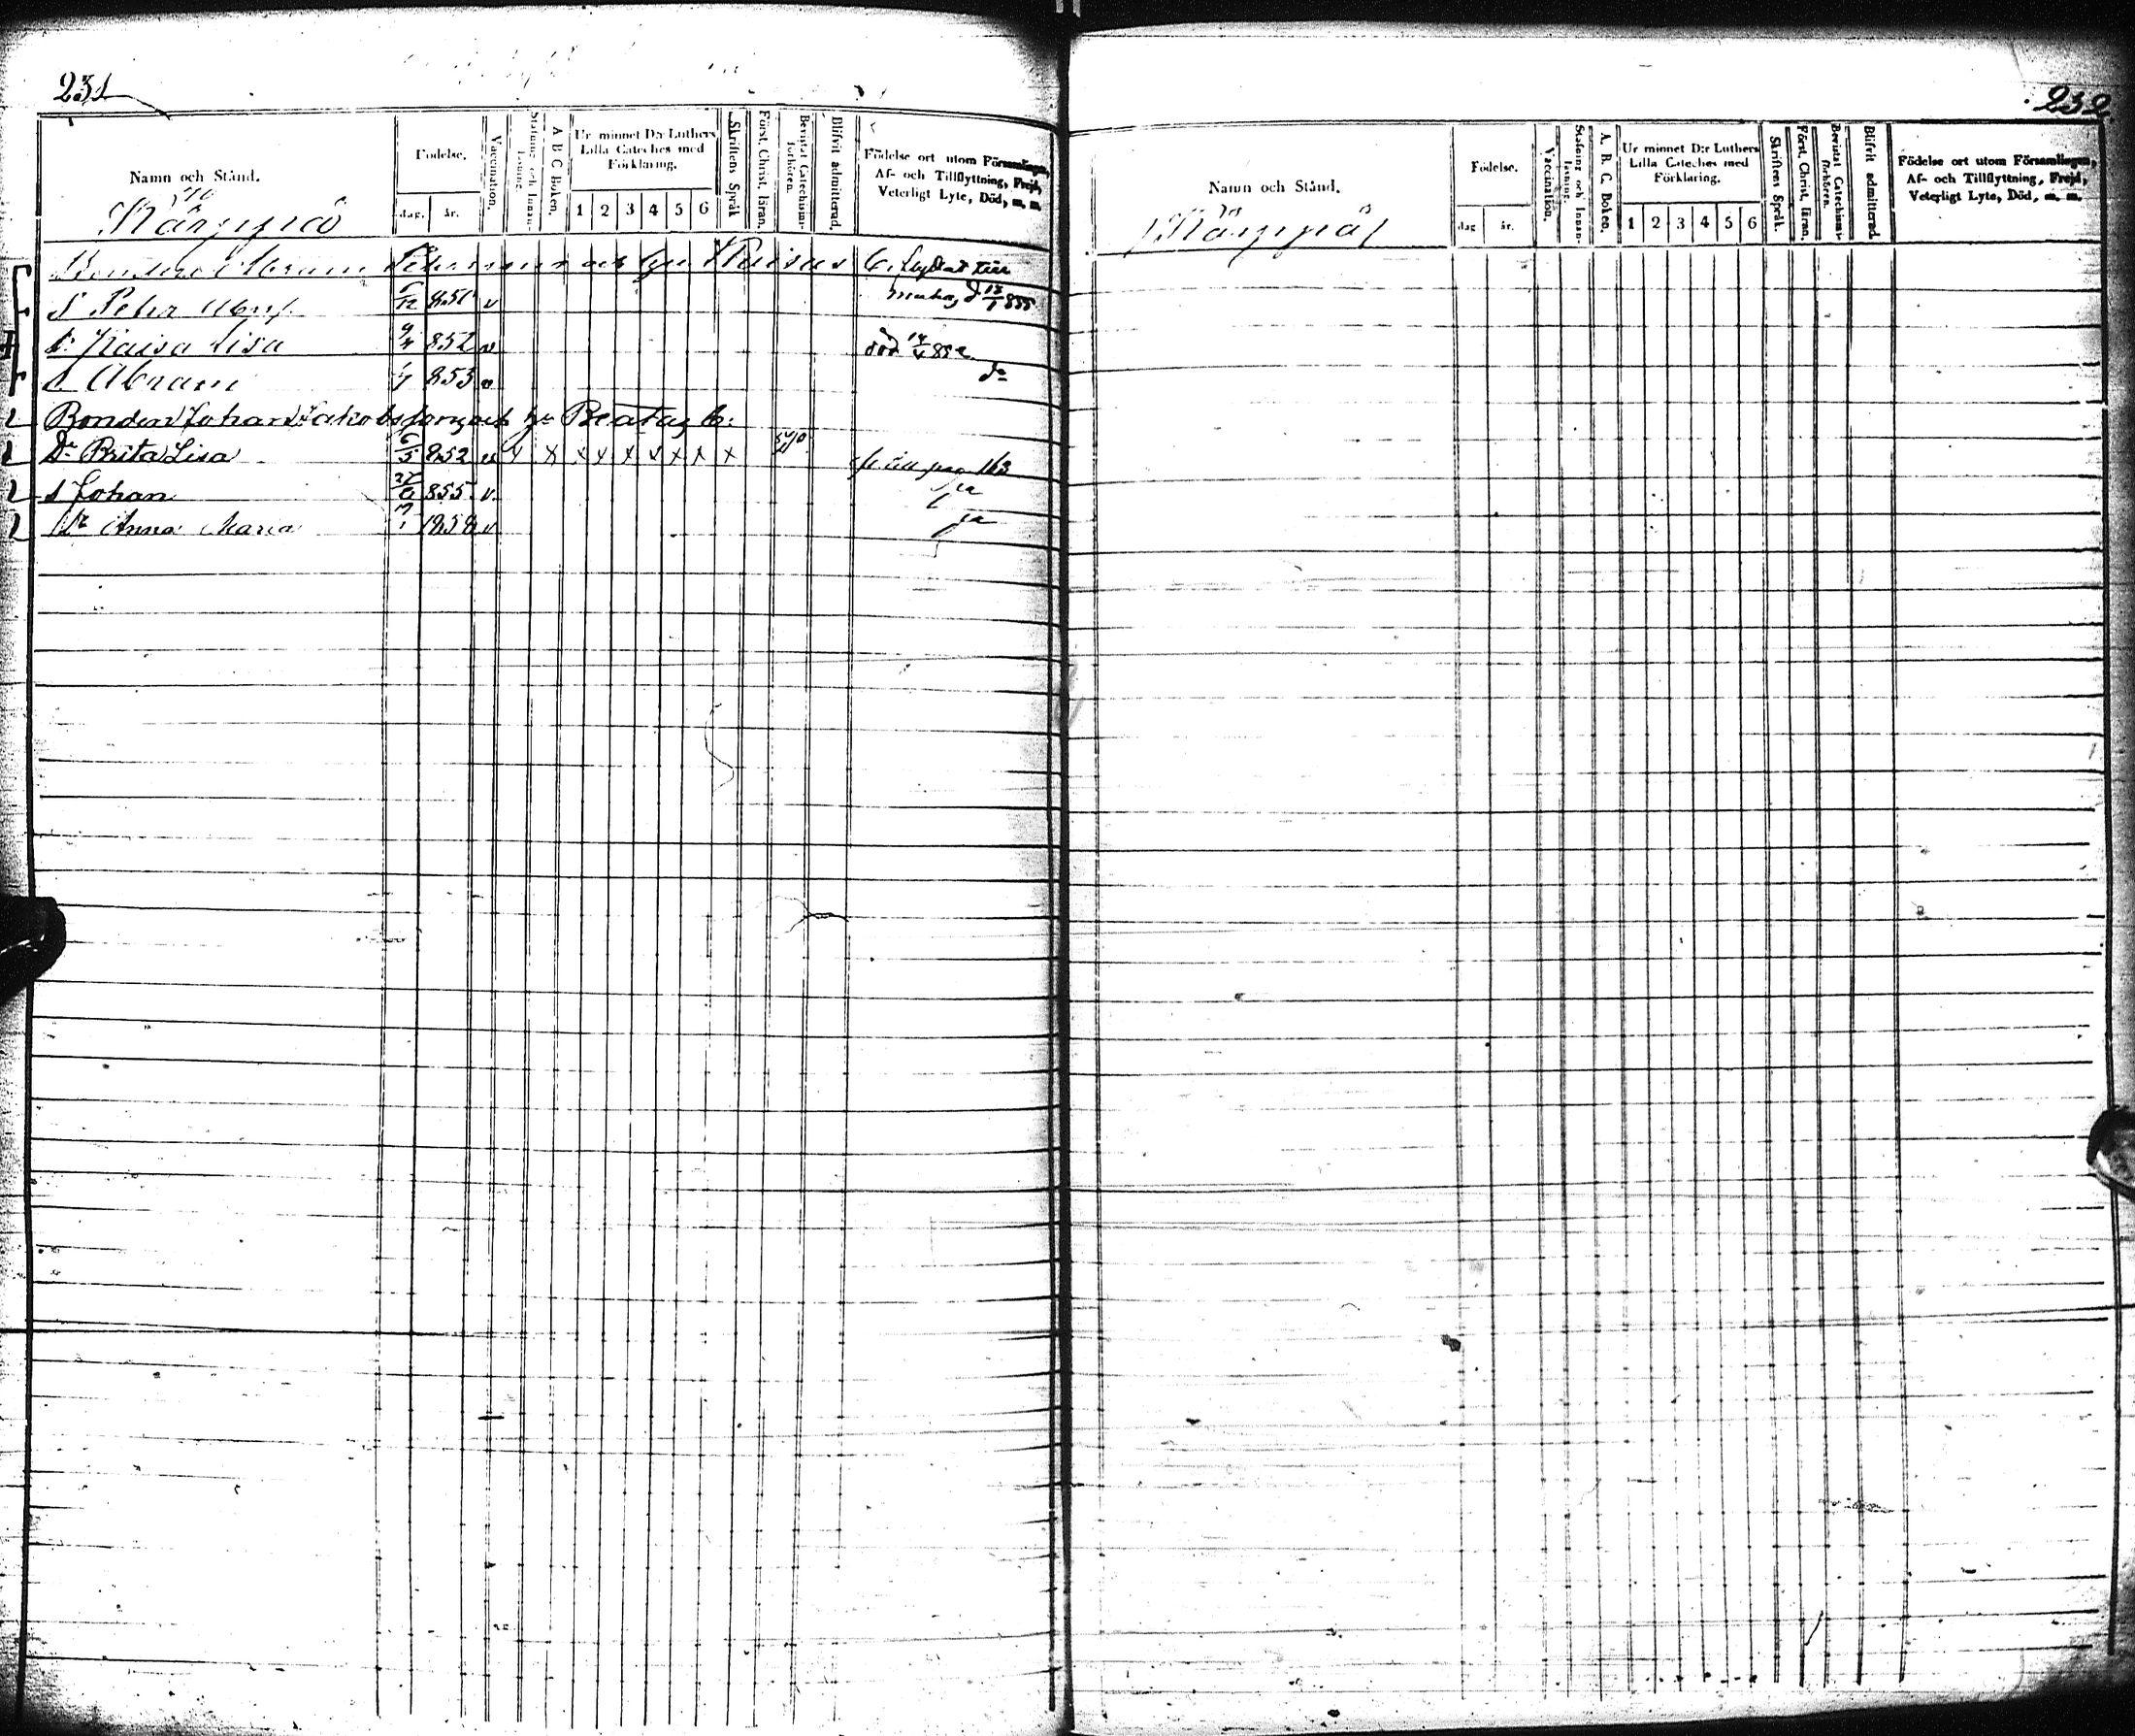 231
Namn och Stånd.
Födelse.
dag. år.
Vaccination.
Stafning och Innanläsning.
A B C Boken.
Ur minnet D:r Luthers Lilla Cateches med Förklaring.
1 2 3 4 5 6
Skriftens Språk
Först. Christ. läran.
Bevistat Catechismiförhören.
Blifvit admitterad.
Födelse ort utom Församlingen, Af- och Tillflyttning, Frejd, Veterligt Lyte, Död, m. m.
Kärppä
Bonden Abram Petersson och hu Kaisas C. flydat till
S Petr Abrs. 851 v 855
Dr Kaisa Lisa 852 v död 14/4 852
S Abram 853 v do
2 Bonden Johan Jakobsson och hu Beatas b:
2 Dr Brita Lisa 6/5 852 v x x x x x x x x x pag 163
2 S Johan 855 v ja
2 Dr Anna Maria 1858 v ja
232
Namn och Stånd.
Födelse.
dag år.
Vaccination.
Stafning och Innanläsning.
A. B. C. Boken.
Ur minnet D:r Luthers Lilla Cateches med Förklaring.
1 2 3 4 5 6
Skriftens Språk.
Först. Christ. läran.
Bevistat Catechismiförhören.
Blifvit admitterad.
Födelse ort utom Församlingen, Af- och Tillflyttning, Frejd, Veterligt Lyte, Död, m. m.
Kärppä